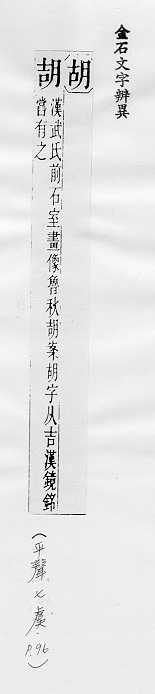 金石文字辨異
胡
胡
漢武氏前石室畫像魯秋胡案胡字从吉漢鏡銘
當有之
(平聲.七虞.P.96)